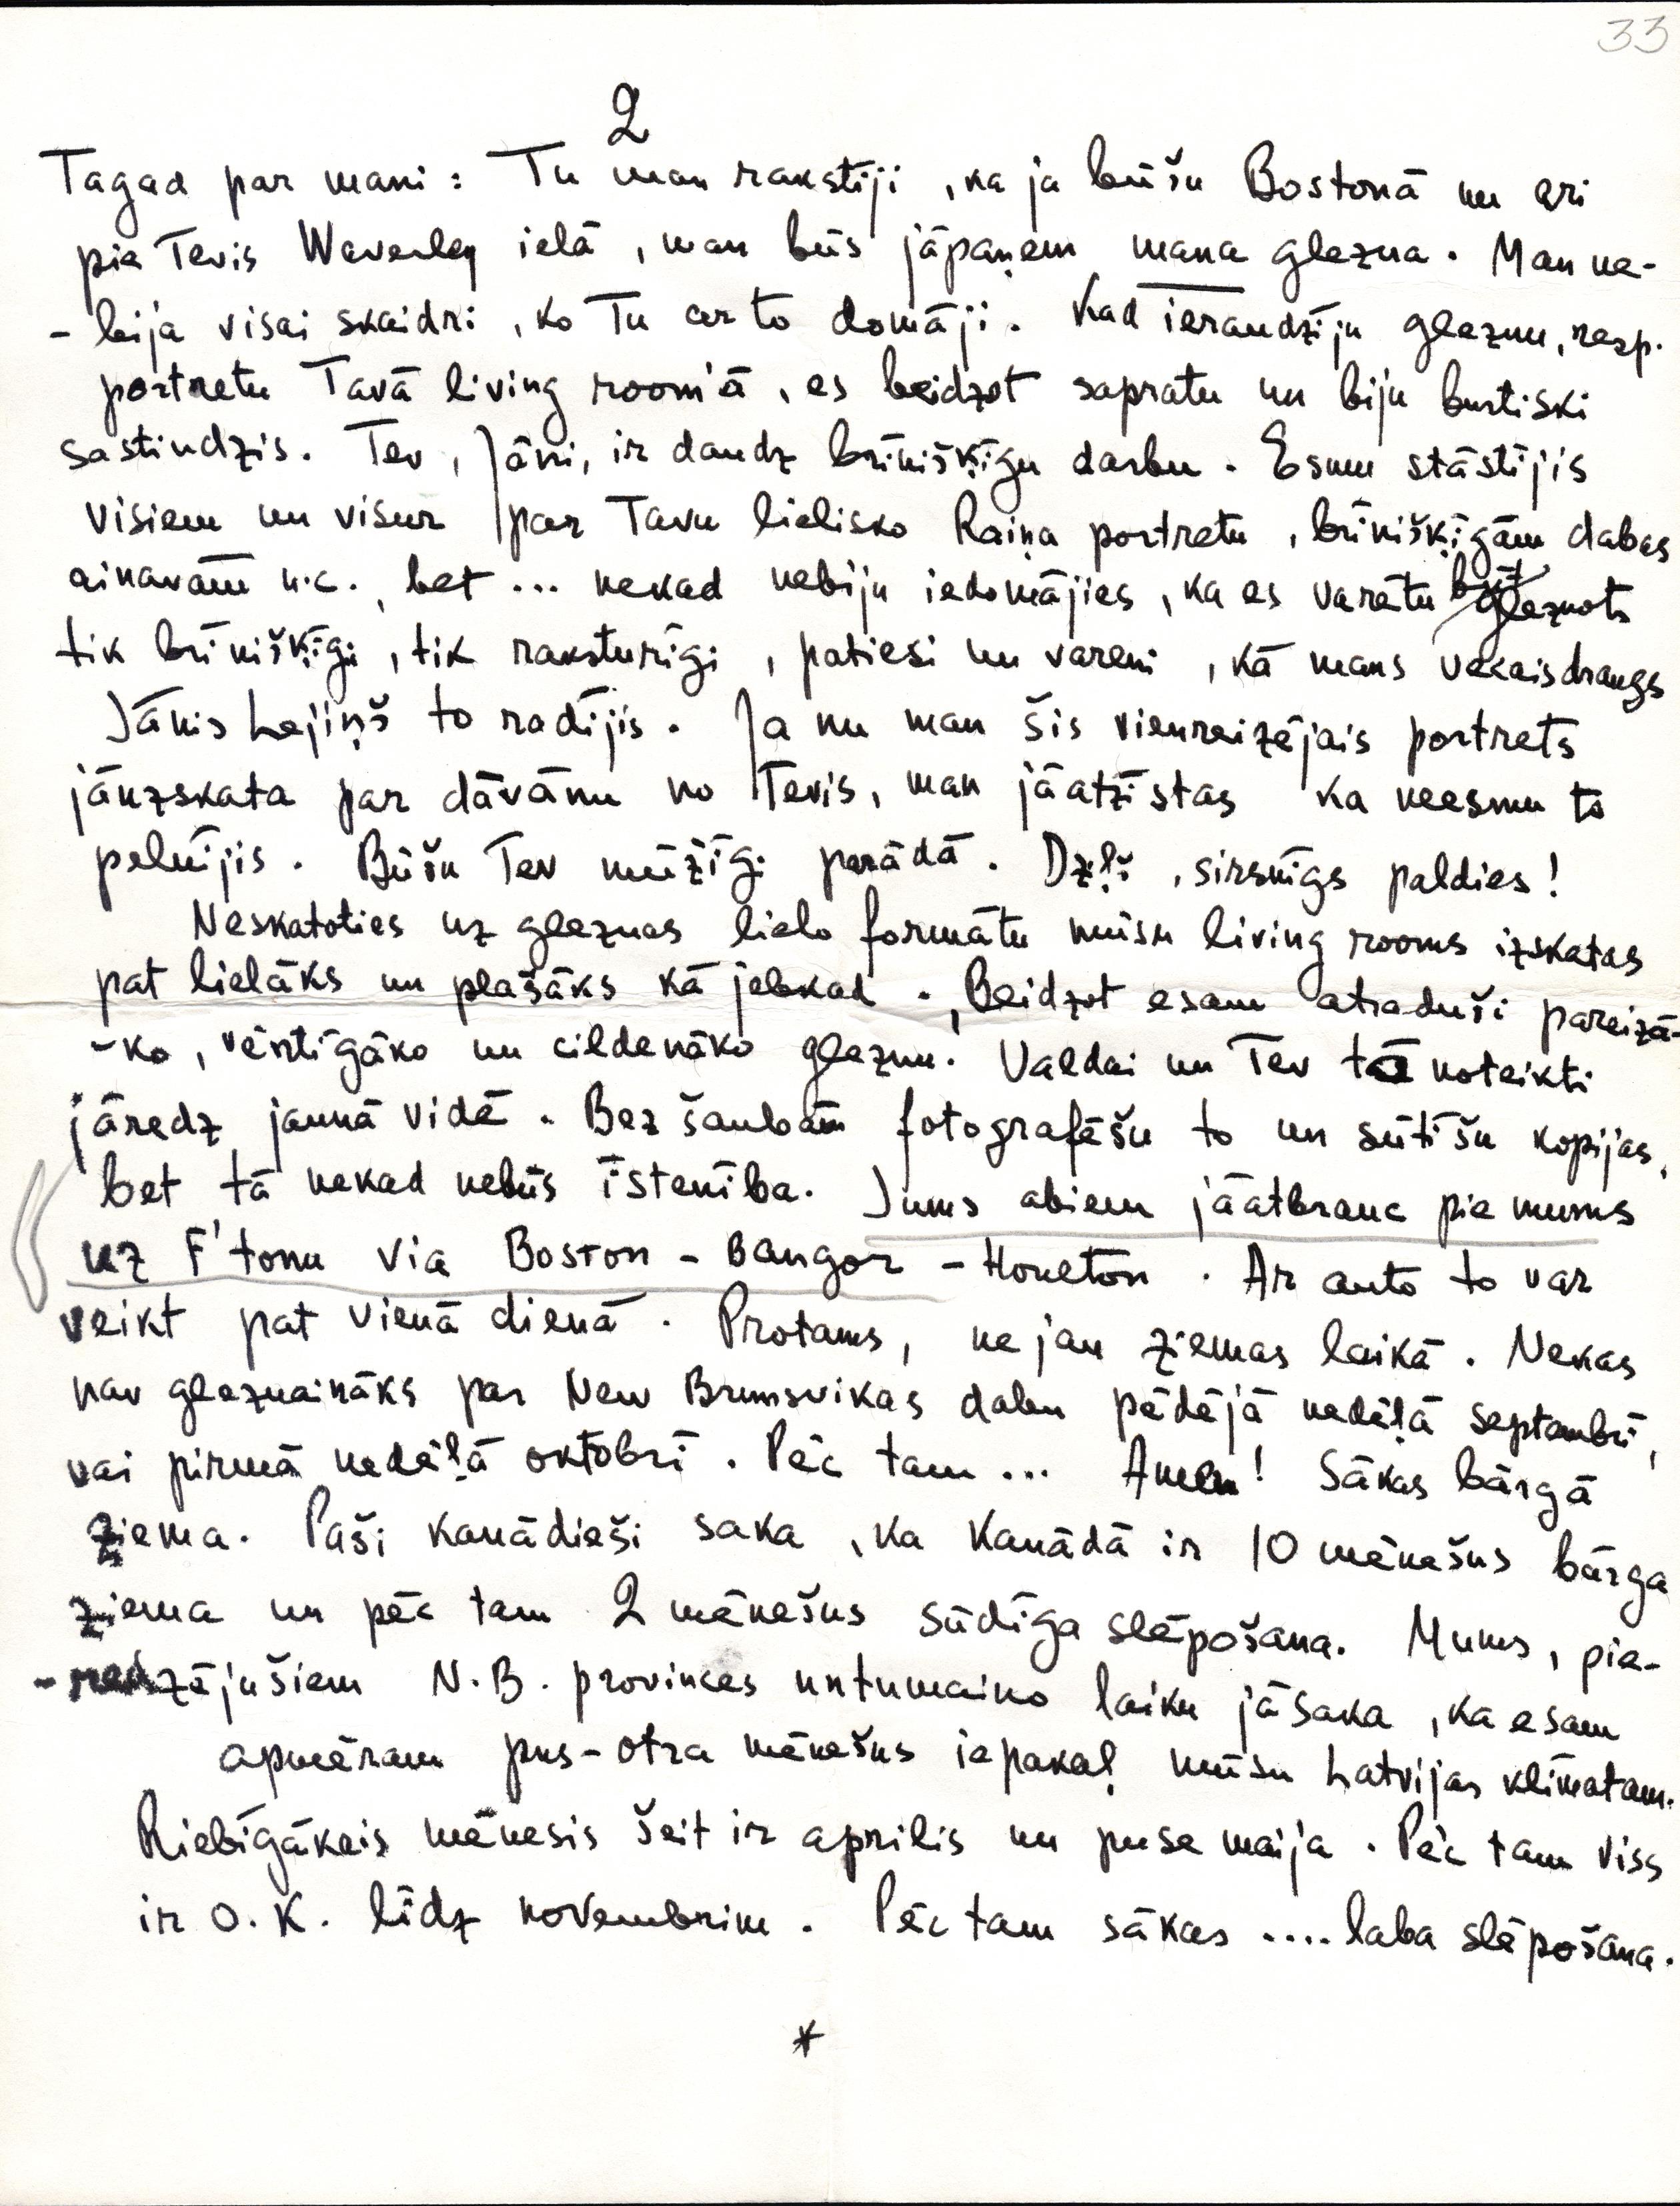 33
2
Tagad par mani: Tu man rakstīji, ka ja būšu Bostonā un ari
pie Tevis Waverley ielā, man būs jāpaņem mana glezna. Man ne-
- bija visai skaidri, ko Tu ar to domāji. Kad ieraudzīju gleznu, resp.
portretu Tavā living room'ā, es beidzot sapratu un biju burtiski
sastindzis. Tev, Jāni, ir daudz brīnišķīgu darbu. Esmu stāstījis
visiem un visur par Tavu lielisko Raiņa portretu, brīnišķīgām dabas
ainavām u.c., bet ... nekad nebiju iedomājies, ka es varētu būt gleznots
tik brīnišķīgi, tik raksturīgi, patiesi un vareni, kā mans vecais draugs
Jānis Lejiņš to radījis. Ja nu man šis vienreizējais portrets
jāuzskata par dāvānu no Tevis, man jāatzīstas ka neesmu to
pelnījis. Būšu Tev mūžīgi parādā. Dziļš, sirsnīgs paldies!
Neskatoties uz gleznas lielo formātu mūsu living rooms izskatas
pat lielāks un plašāks kā jebkad. Beidzot esam atraduši pareizā-
-ko, vērtīgāko un cildenāko gleznu. Valdai un Tev tā noteikti
jāredz jaunā vidē. Bez šaubām fotografēšu to un sūtīšu kopijas,
bet tā nekad nebūs īstenība. Jums abiem jāatbrauc pie mums
uz F'tonu via Boston - Bangor - Houlton. Ar auto to var
veikt pat vienā dienā. Protams, ne jau ziemas laikā. Nekas
nav gleznaināks par New Brunsvikas dabu pēdējā nedēļā septembrī,
vai pirmā nedēļā oktobrī. Pēc tam ... Amen! Sākas bārgā
ziema. Paši kanādieši saka, ka Kanādā ir 10 mēnešus bārga
ziema un pēc tam 2 mēnešus sūdīga slēpošana. Mums, pie-
- redzējušiem N.B. provinces untumaino laiku jāsaka, ka esam
apmēram pus-otra mēnešus iepakaļ mūsu Latvijas klimatam.
Riebīgākais mēnesis šeit ir aprilis un puse maija. Pēc tam viss
ir O.K. līdz novembrim. Pēc tam sākas .... laba slēpošana.
*